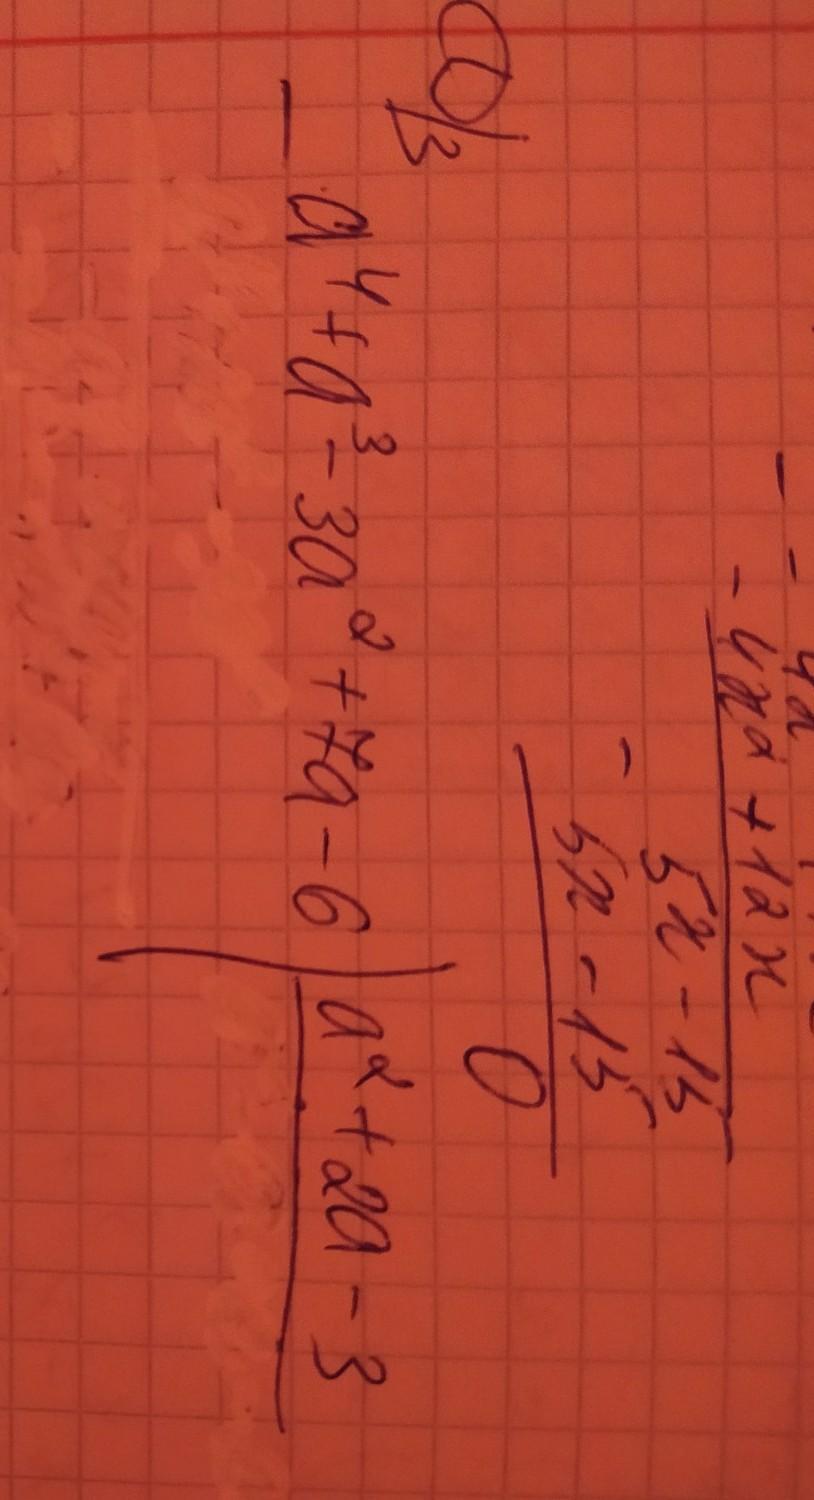 - 4x
- 4x² + 12x
- 5x - 15
5x - 15
0
D/з
- a⁴ + a³ - 3a² + 7a - 6 | a² + 2a - 3